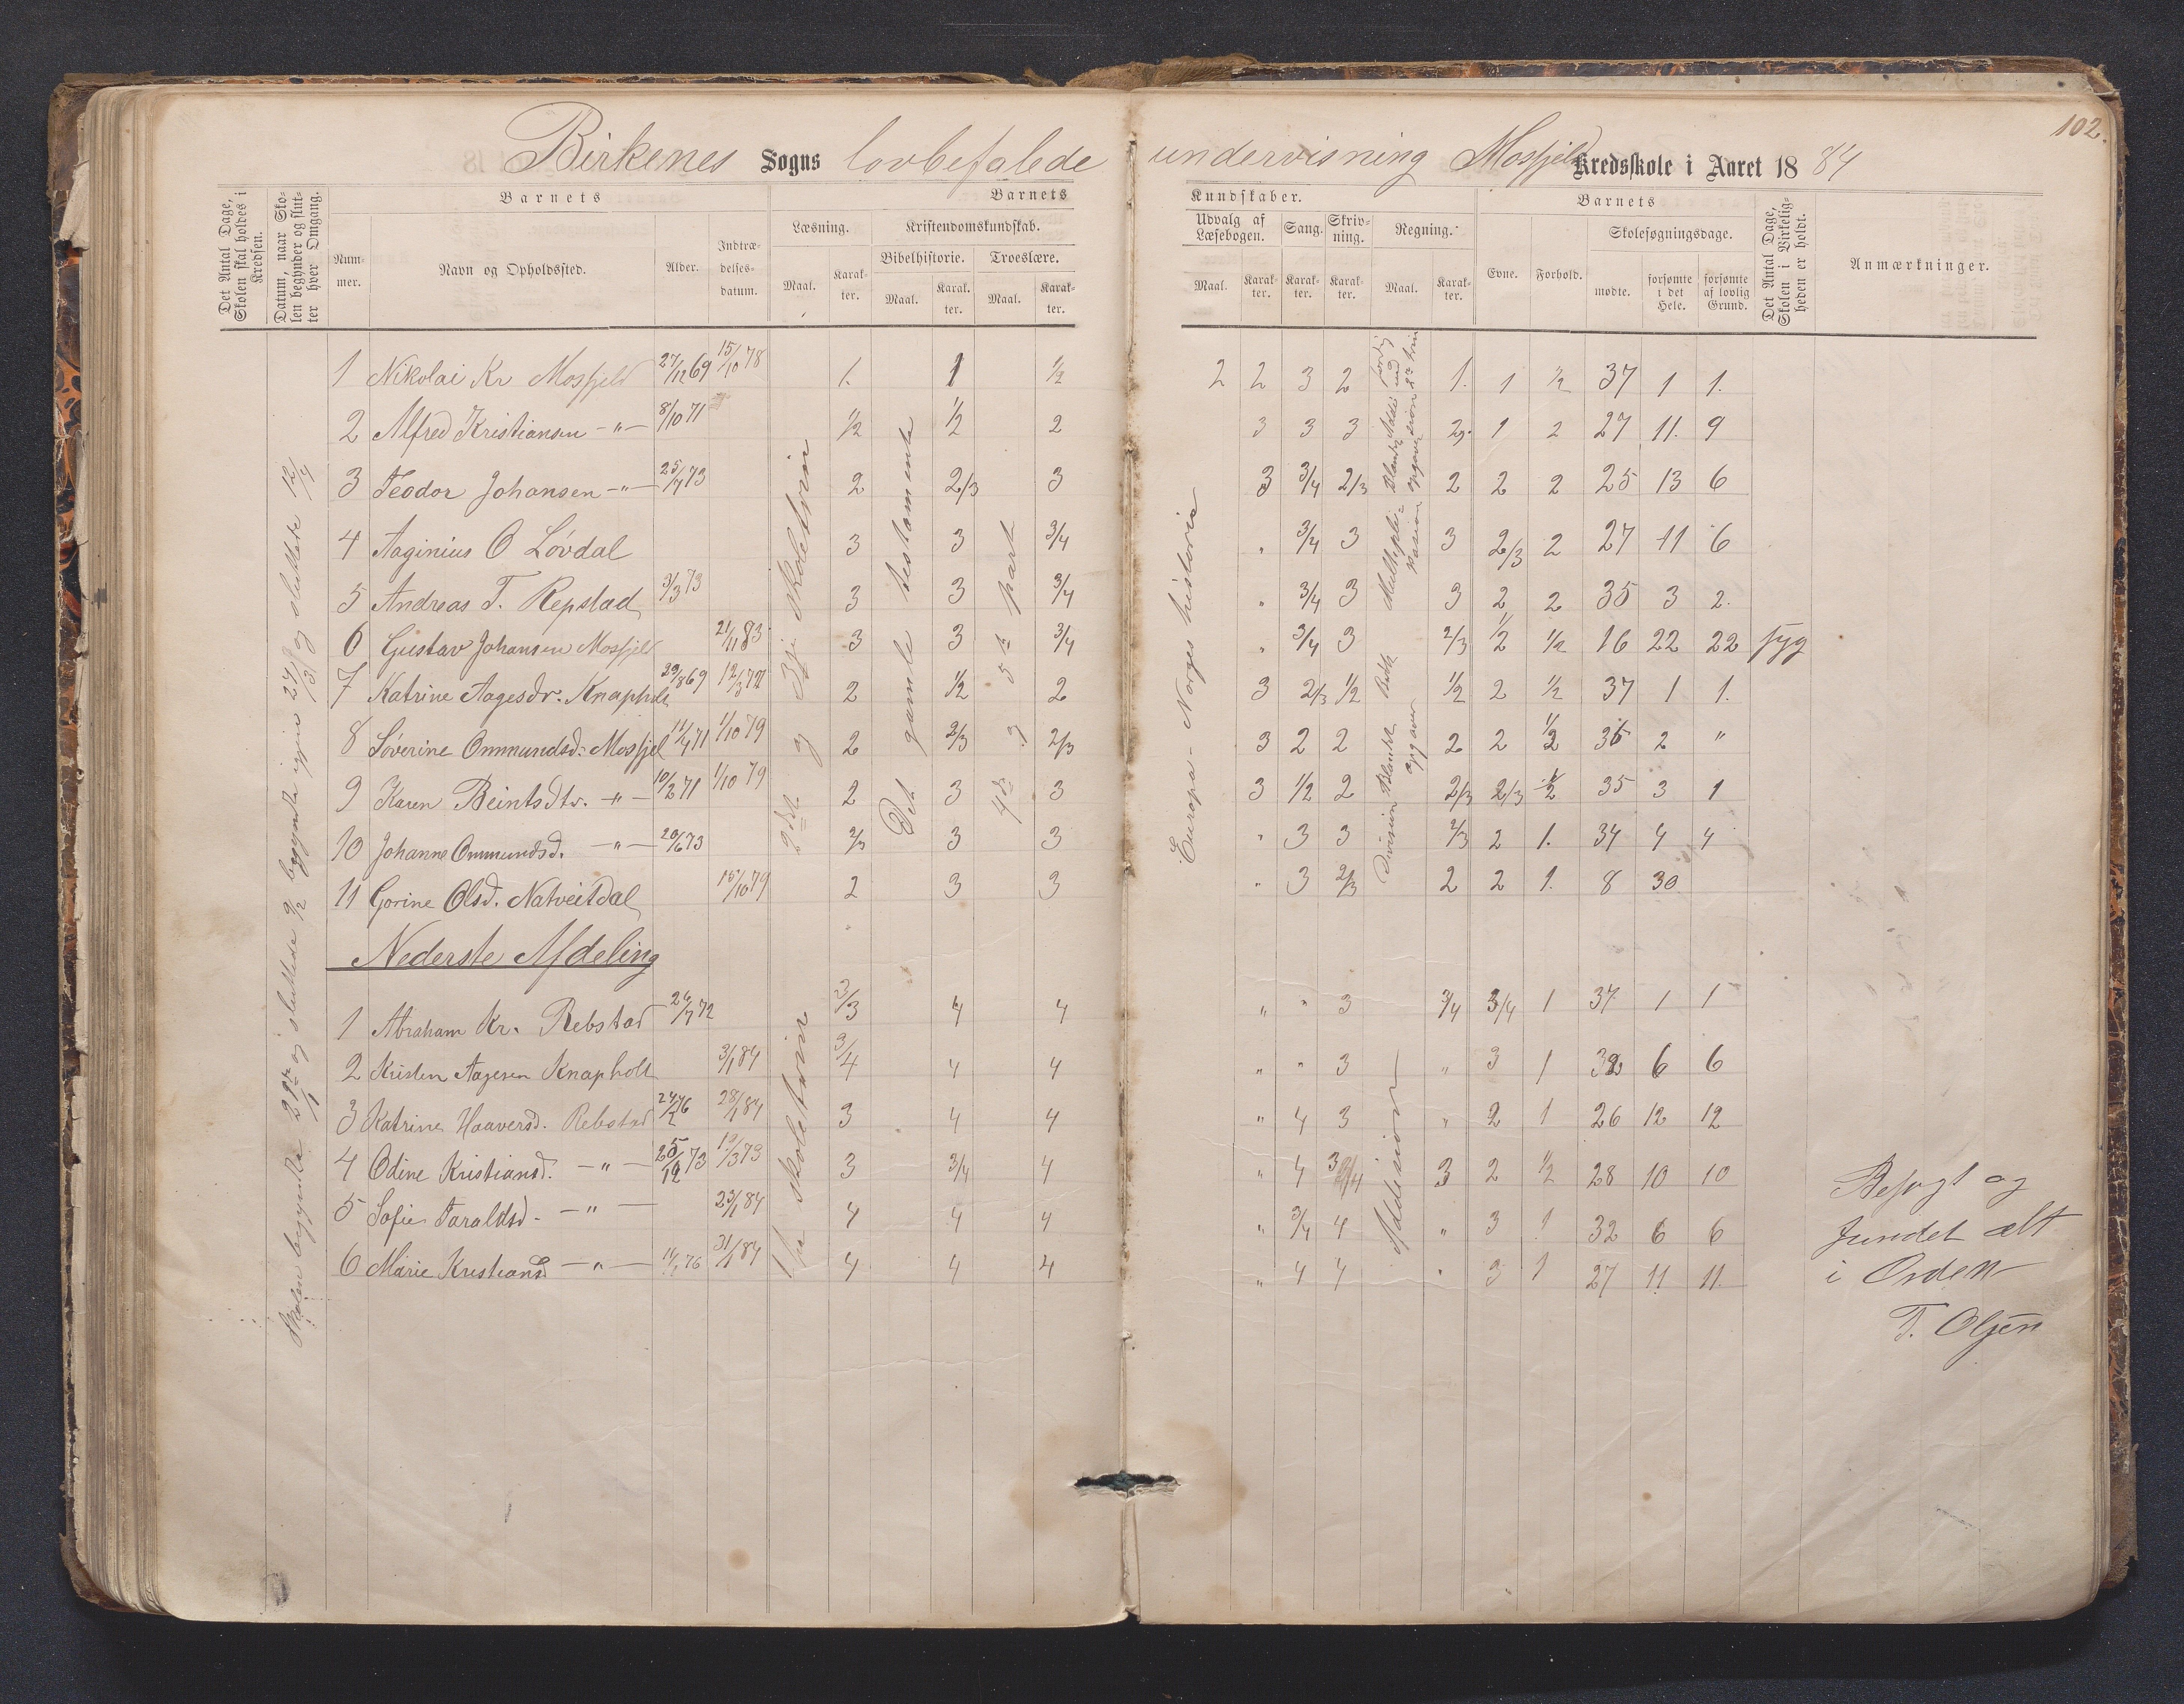 102.
Birkenes Sogns lovbefalede undervisning Mosfjeld Kredsskole i Aaret 1884
Det Antal Dage, Skolen skal holdes i Kredsen.
Datum, naar Skolen begynder og slutter hver Omgang.
Barnets
Nummer.
Navn og Opholdssted.
Alder.
Indtrædelsesdatum.
Barnets
Læsning.
Maal.
Karakter.
Kristendomskundskab.
Bibelhistorie.
Maal.
Karakter.
Troeslære.
Maal.
Karakter.
Kundskaber.
Udvalg af Læsebogen.
Maal.
Karakter.
Sang.
Karakter.
Skrivning.
Karakter.
Regning.
Maal.
Karakter.
Barnets
Evne.
Forhold.
Skolesøgningsdage.
mødte.
forsømte i det Hele.
forsømte af lovlig Grund.
Det Antal Dage, Skolen i Virkeligheden er holdt.
Anmærkninger.
1 Nikolai Kr Mosfjeld 27/12 69 15/10 78 1. 1 1/2 2 2 3 2 1. 1 1/2 37 1 1.
2 Alfred Kristiansen -"- 8/10 71 1/2 1/2 2 3 3 3 2. 1 2 27 11. 9
3 Teodor Johansen -"- 25/7 73 2 2/3 3 3 3/4 2/3 2 2 2 25 13 6
4 Aaginius O Løvdal 3 3 3/4 " 3/4 3 3 2/3 2 27 11 6
5 Andreas T. Repstad 3/3 73 3 3 3/4 " 3/4 3 3 2 2 35 3 2.
6 Gustav Johansen Mosfjeld 21/11 83 3 3 3/4 " 3/4 3 2/3 1/2 1/2 16 22 22 syg
7 Katrine Aagesdr. Knapholt 29/8 69 2 1/2 2 3 2/3 1/2 1/2 2 1/2 37 1 1.
8 Søverine Ommundsd. Mosfjel 11/4 71 1/10 79 2 2/3 2/3 3 2 2 2 2 1/2 36 2 "
9 Karen Beintsdtr. -"- 10/2 71 1/10 79 2 3 3 3 1/2 2 2/3 2/3 1/2 35 3 1
10 Johanne Ommundsd. -"- 20/6 73 2/3 3 3 " 3 3 2/3 2 1. 34 4 4
11 Gorine Olsd. Natveitdal 15/10 79 2 3 3 " 3 2/3 2 2 1. 8 30
Nederste Afdeling
1 Abraham Kr. Rebstad 26/7 72 2/3 4 4 " " 3 3/4 3/4 1 37 1 1
2 Kristen Aagesen Knapholt 3/1 84 3/4 4 4 " " 3 " 3 1 32 6 6
3 Katrine Haaversd. Rebstad 28/1 84 3 4 4 " 4 3 " 2 1 26 12 12
4 Odine Kristiansd. -"- 25/12 73 3 3/4 4 " 4 3/4 3 2 1/2 28 10 10
5 Sofie Taraldsd. -"- 23/1 84 4 4 4 " 3/4 4 " 3 1 32 6 6
6 Marie Kristiansd -"- 31/1 84 4 4 4 " 4 4 " 3 1 27 11 11.
Skolen begyndte og sluttede 9/2 begyndte igjen 27/3 og sluttede 12/4
2det og 3die skoletrin
Det gamle testamente
4de og 5te part
Europa - Norges historie
Division Blandede opgaver
Multiplikasion
1ste skoletrin
Addision
Besøgt og
fundet alt
i Orden
T. Olsen